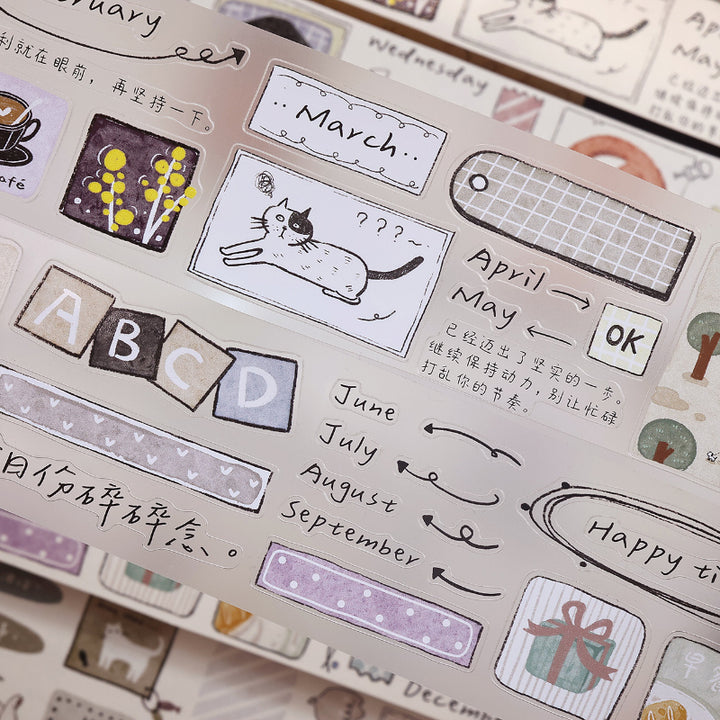 利就在眼前，再坚持一下。
Wednesday
March
afé
? ? ? ~
April
May
OK
已经迈出了坚实的一步。
继续保持动力，别让忙碌
打乱你的节奏。
A B C D
June
July
August
September
月份碎碎念。
Happy ti
Decem